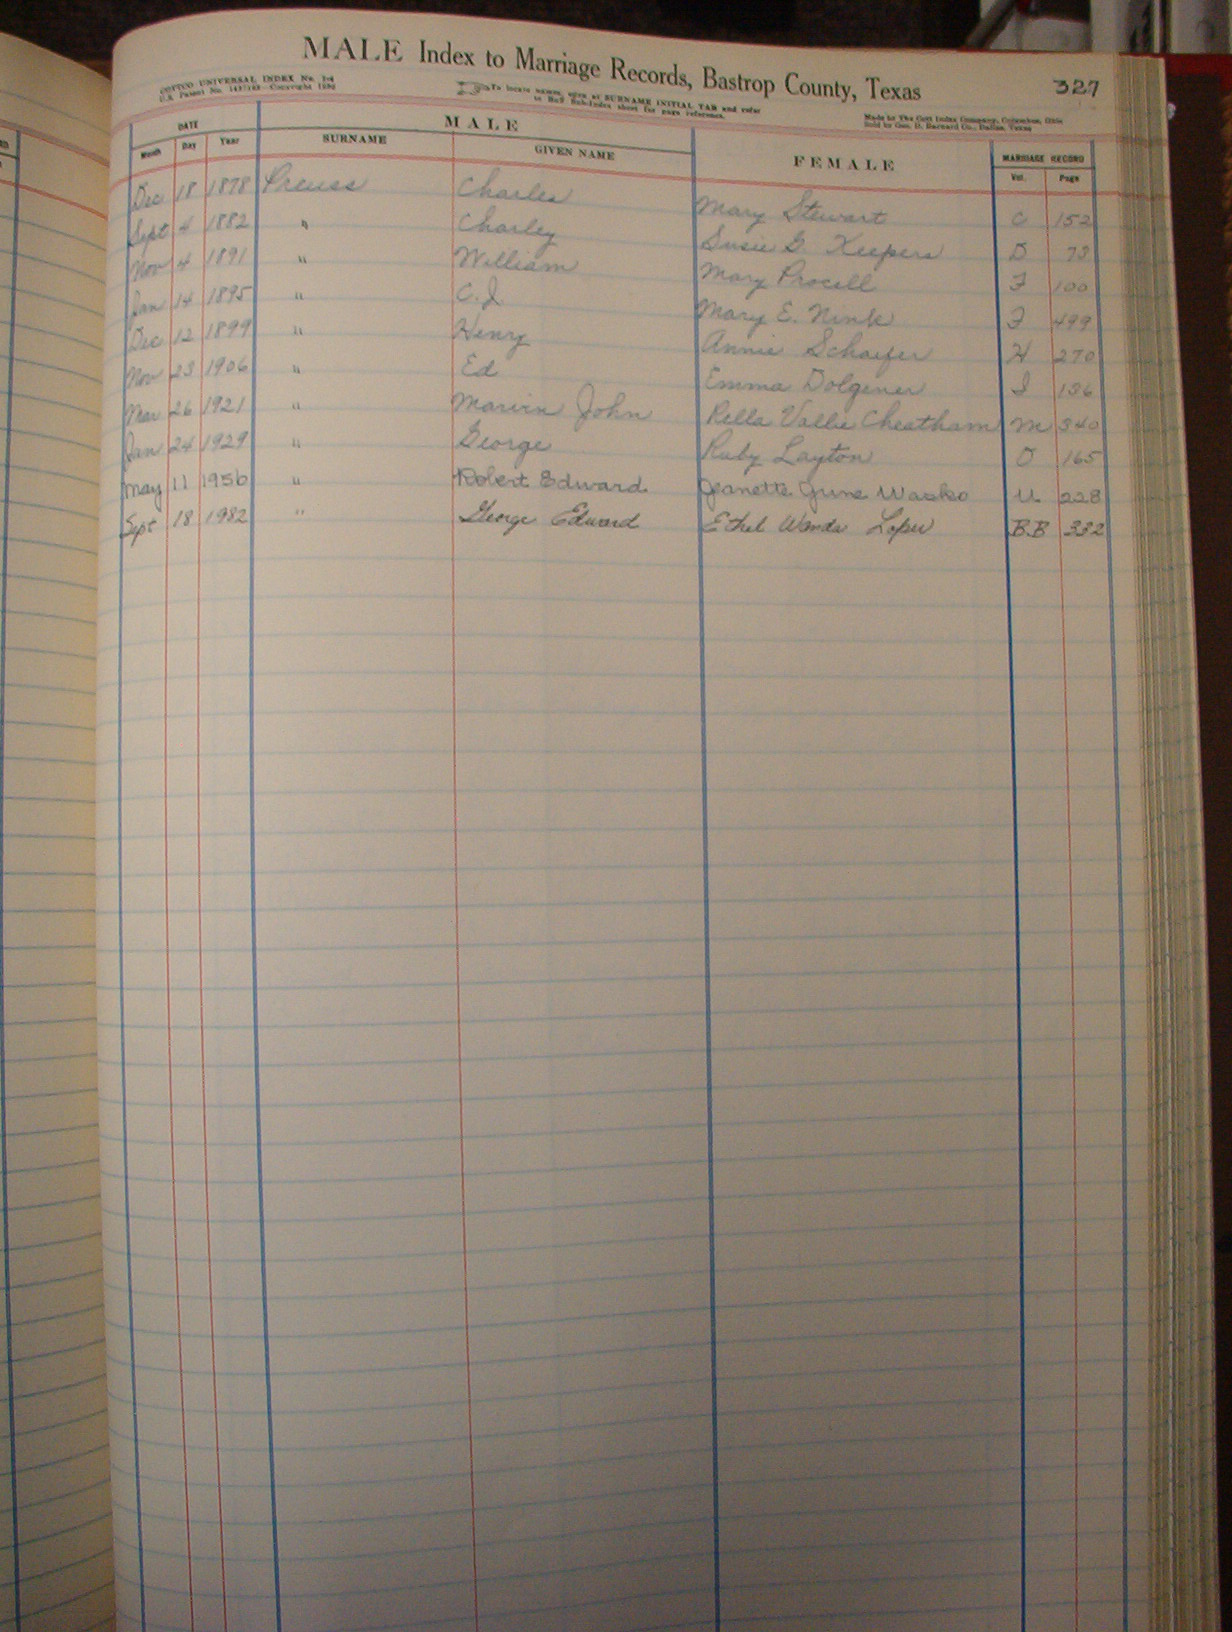 MALE Index to Marriage Records, Bastrop County, Texas 327
COTTCO UNIVERSAL INDEX No.
U.S. Patent No. Copyright
To locate names, open at SURNAME INITIAL TAB and refer
to Sub-Index sheet for page reference.
Made by The Cott Index Company, Columbus, Ohio
Sold by Geo. D. Barnard Co., Dallas, Texas
DATE MALE FEMALE MARRIAGE RECORD
Month Day Year SURNAME GIVEN NAME Vol. Page
Dec 18 1878 Preuss Charles Mary Stewart C 152
Sept 4 1882 " Charley Susie G. Keepers D 73
Nov 4 1891 " William Mary Procell F 100
Jan 14 1895 " C.J. Mary E. Nink F 499
Dec 12 1899 " Henry Annie Schaefer H 270
Nov 23 1906 " Ed Emma Dolgener I 136
Mar 26 1921 " Marvin John Rella Vallie Cheatham M 340
Jan 24 1929 " George Ruby Layton O 165
May 11 1956 " Robert Edward Jeanette June Wasko U 228
Sept 18 1982 " George Edward Ethel Wanda BB 332